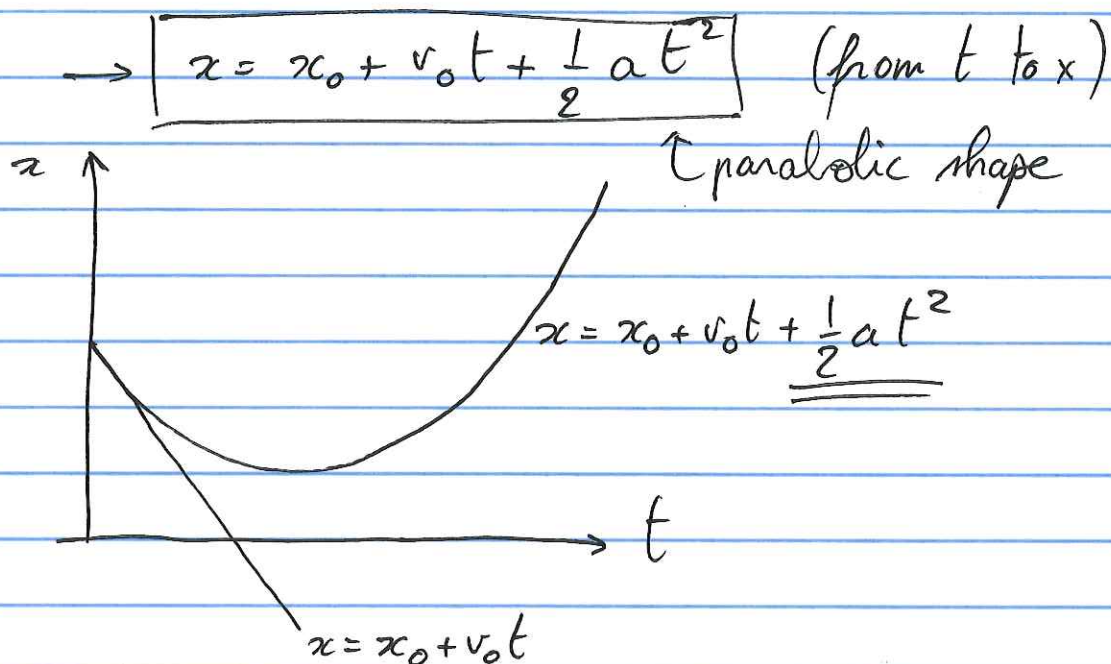 → x = x₀ + v₀t + 1/2 at² (from t to x)
↑ parabolic shape
x
x = x₀ + v₀t + 1/2 at²
t
x = x₀ + v₀t